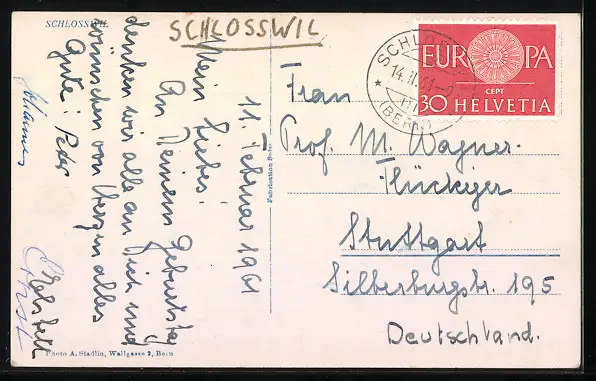 SCHLOSSWIL
SCHLOSSWIL
11. Februar 1961
Mein Lieber!
An Deinem Geburtstag
denken wir alle an Dich und
wünschen von Herzen alles
Gute! Peter
Johannes
Ernst
Fabrication Suisse
Photo A. Stadlin, Wallgasse 2, Bern
SCHLO
14. II. 61-
(BERN)
EUROPA
CEPT
30 HELVETIA
Frau
Prof. M. Wagner-
Flückiger
Stuttgart
Silberburgstr. 195
Deutschland.